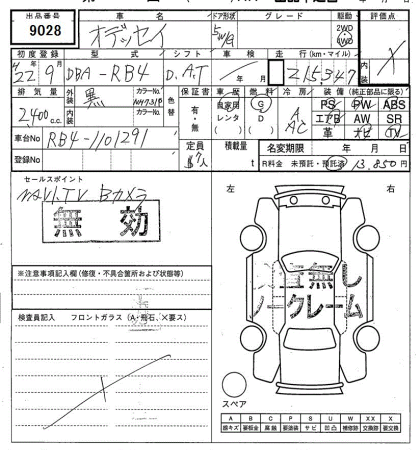 出品番号 車名 ドア形状 グレード 駆動 評価点
9028 オデッセイ 5 W/G 2WD 4WD X
初度登録 型式 シフト 車検 走行(km・マイル)
22年9月 DBA-RB4 D.AT 年 月 215,347
排気量 外装 色 カラーNo. 色替 保証書 車歴 燃料 冷房 装備(純正部品に限る)
2,400c.c. 黒 NH731P 有・無 自家用 レンタ G D A AC PS PW ABS
内装 色 カラーNo. エアB AW SR
革 ナビ TV
車台No RB4-1101291 定員 人 積載量 t 名変期限 年 月 日
登録No R料金 未預託・預託済 13,850円
セールスポイント
NAVI.TV Bカメラ
無効
左 右
※注意事項記入欄(修復・不具合箇所および状態等)
検査員記入 フロントガラス(A・飛石、X要ス)
無し
ノークレーム
スペア
A B C P S U W X XX
線キズ 要板金 腐蝕 要塗装 サビ 凹凸 補修跡 要交換 交換跡